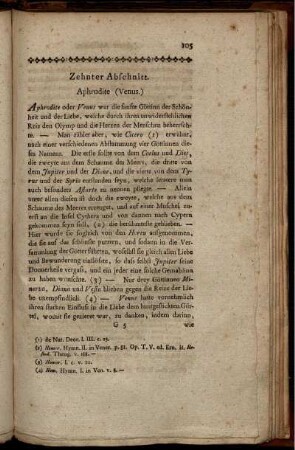 105
Zehnter Abschnitt.
Aphrodite (Venus.)
Aphrodite oder Venus war die sanfte Göttinn der Schön-
heit und der Liebe, welche durch ihren unwiderstehlichen
Reiz den Olymp und die Herzen der Menschen beherrsch-
te. — Man zählet aber, wie Cicero (1) erwähnt,
nach einer verschiedenen Abstammung vier Göttinnen die-
ses Namens. Die erste sollte von dem Coelus und Dies,
die zweyte aus dem Schaume des Meers, die dritte von
dem Jupiter und der Dione, und die vierte von dem Ty-
rus und der Syria entstanden seyn, welche letztere man
auch besonders Astarte zu nennen pfleget. — Allein
unter allen diesen ist die zweyte, welche aus dem
Schaume des Meeres erzeugt, und auf einer Muschel zu-
erst an die Insel Cythera und von dannen nach Cypern
gekommen seyn soll, (2) die berühmteste geblieben. —
Hier wurde sie sogleich von den Horen aufgenommen,
die sie auf das schönste putzten, und sodann in die Ver-
sammlung der Götter führten, woselbst sie gleich allen Liebe
und Bewunderung einflößte, so daß selbst Jupiter seine
Donnerkeile vergaß, und ein jeder eine solche Gemahlinn
zu haben wünschte. (3) — Nur drey Göttinnen Mi-
nerva, Diana und Vesta blieben gegen die Reize der Lie-
be unempfindlich. (4) — Venus hatte vornehmlich
ihren starken Einfluß in die Liebe dem buntgestickten Gür-
tel, womit sie gezieret war, zu danken, indem darinn,
G 5 wie
(1) de Nat. Deor. l. III. c. 23.
(2) Homer. Hymn. II. in Vener. Op. T. V. ed. Ern. It. He-
siod. Theog. v. 188. —
(3) Homer. l. c. v. 12.
(4) Hom. Hymn. I. in Ven. v. 8. —